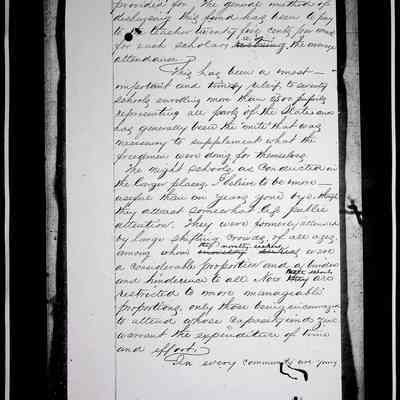 provided for, The general method of
disbursing this fund has been to pay
to the teacher twenty five cents per month
for each scholar, i.e. of the average
attendance.
This has been a most
important and timely relief, to seventy
schools enrolling more than pupils
representing all parts of the State and
has generally been the mite that was
necessary to supplement what the
freedmen were doing for themselves.
The night schools as conducted in
the larger places, I believe to be more
useful than in years gone by &
they attract somewhat less public
attention. They were formerly attended
by large shifting crowds, of all ages
among whom the novelty seekers were
a considerable proportion and a burden
and hinderence to all Now these schools are
restricted to more manageable
proportions, only those being encouraged
to attend whose capacity and zeal
warrant the expenditure of time
and effort.
In every community are young